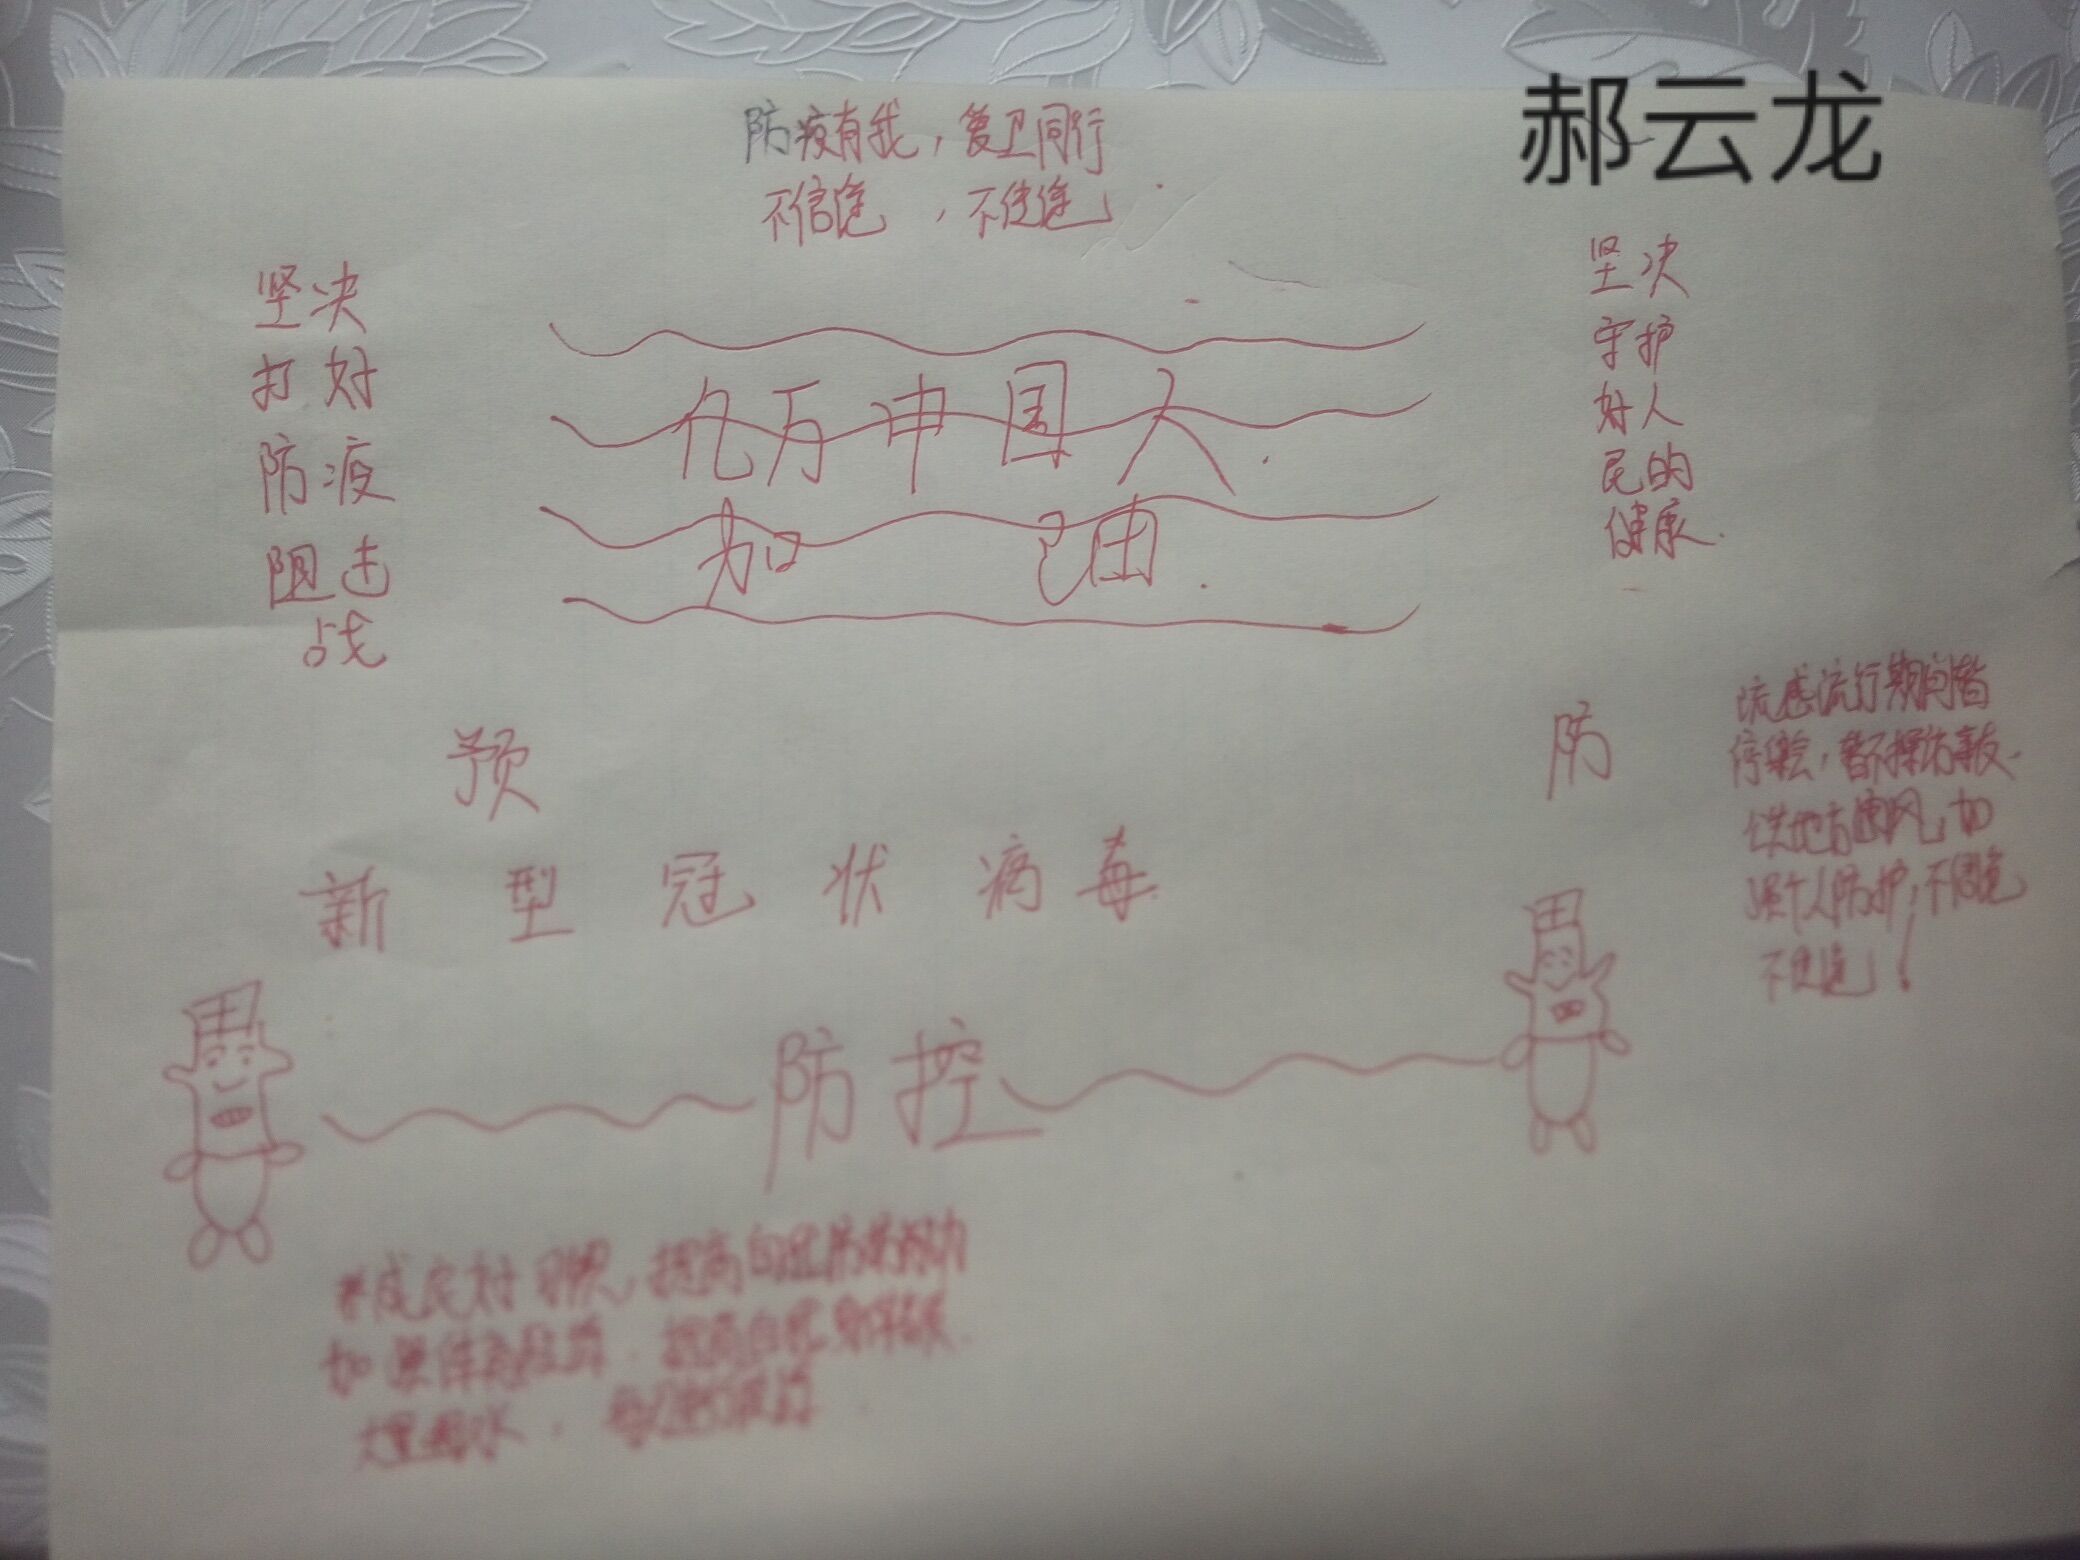 防疫有我，爱卫同行
不信谣，不传谣
郝云龙
坚决
打好
防疫
阻击
战
亿万中国人.
加油.
坚决
守护
好人
民的
健康.
预防
新型冠状病毒
防控
流感流行期间暂
停聚会，暂不探访亲友.
公共地方通风，加
强个人防护，不信谣
不传谣！
养成良好习惯，提高自我防护能力
加强体育锻炼